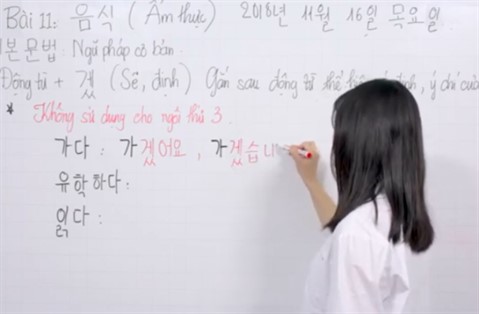 Bài 11: 음식 (Ẩm thực) 2018년 11월 16일 목요일
본 문법: Ngữ pháp cơ bản
Động từ + 겠 (Sẽ, định) Gắn sau động từ thể hiện ý chí của
* Không sử dụng cho ngôi thứ 3
가다 : 가겠어요 , 가겠습니
유학하다:
읽다 :